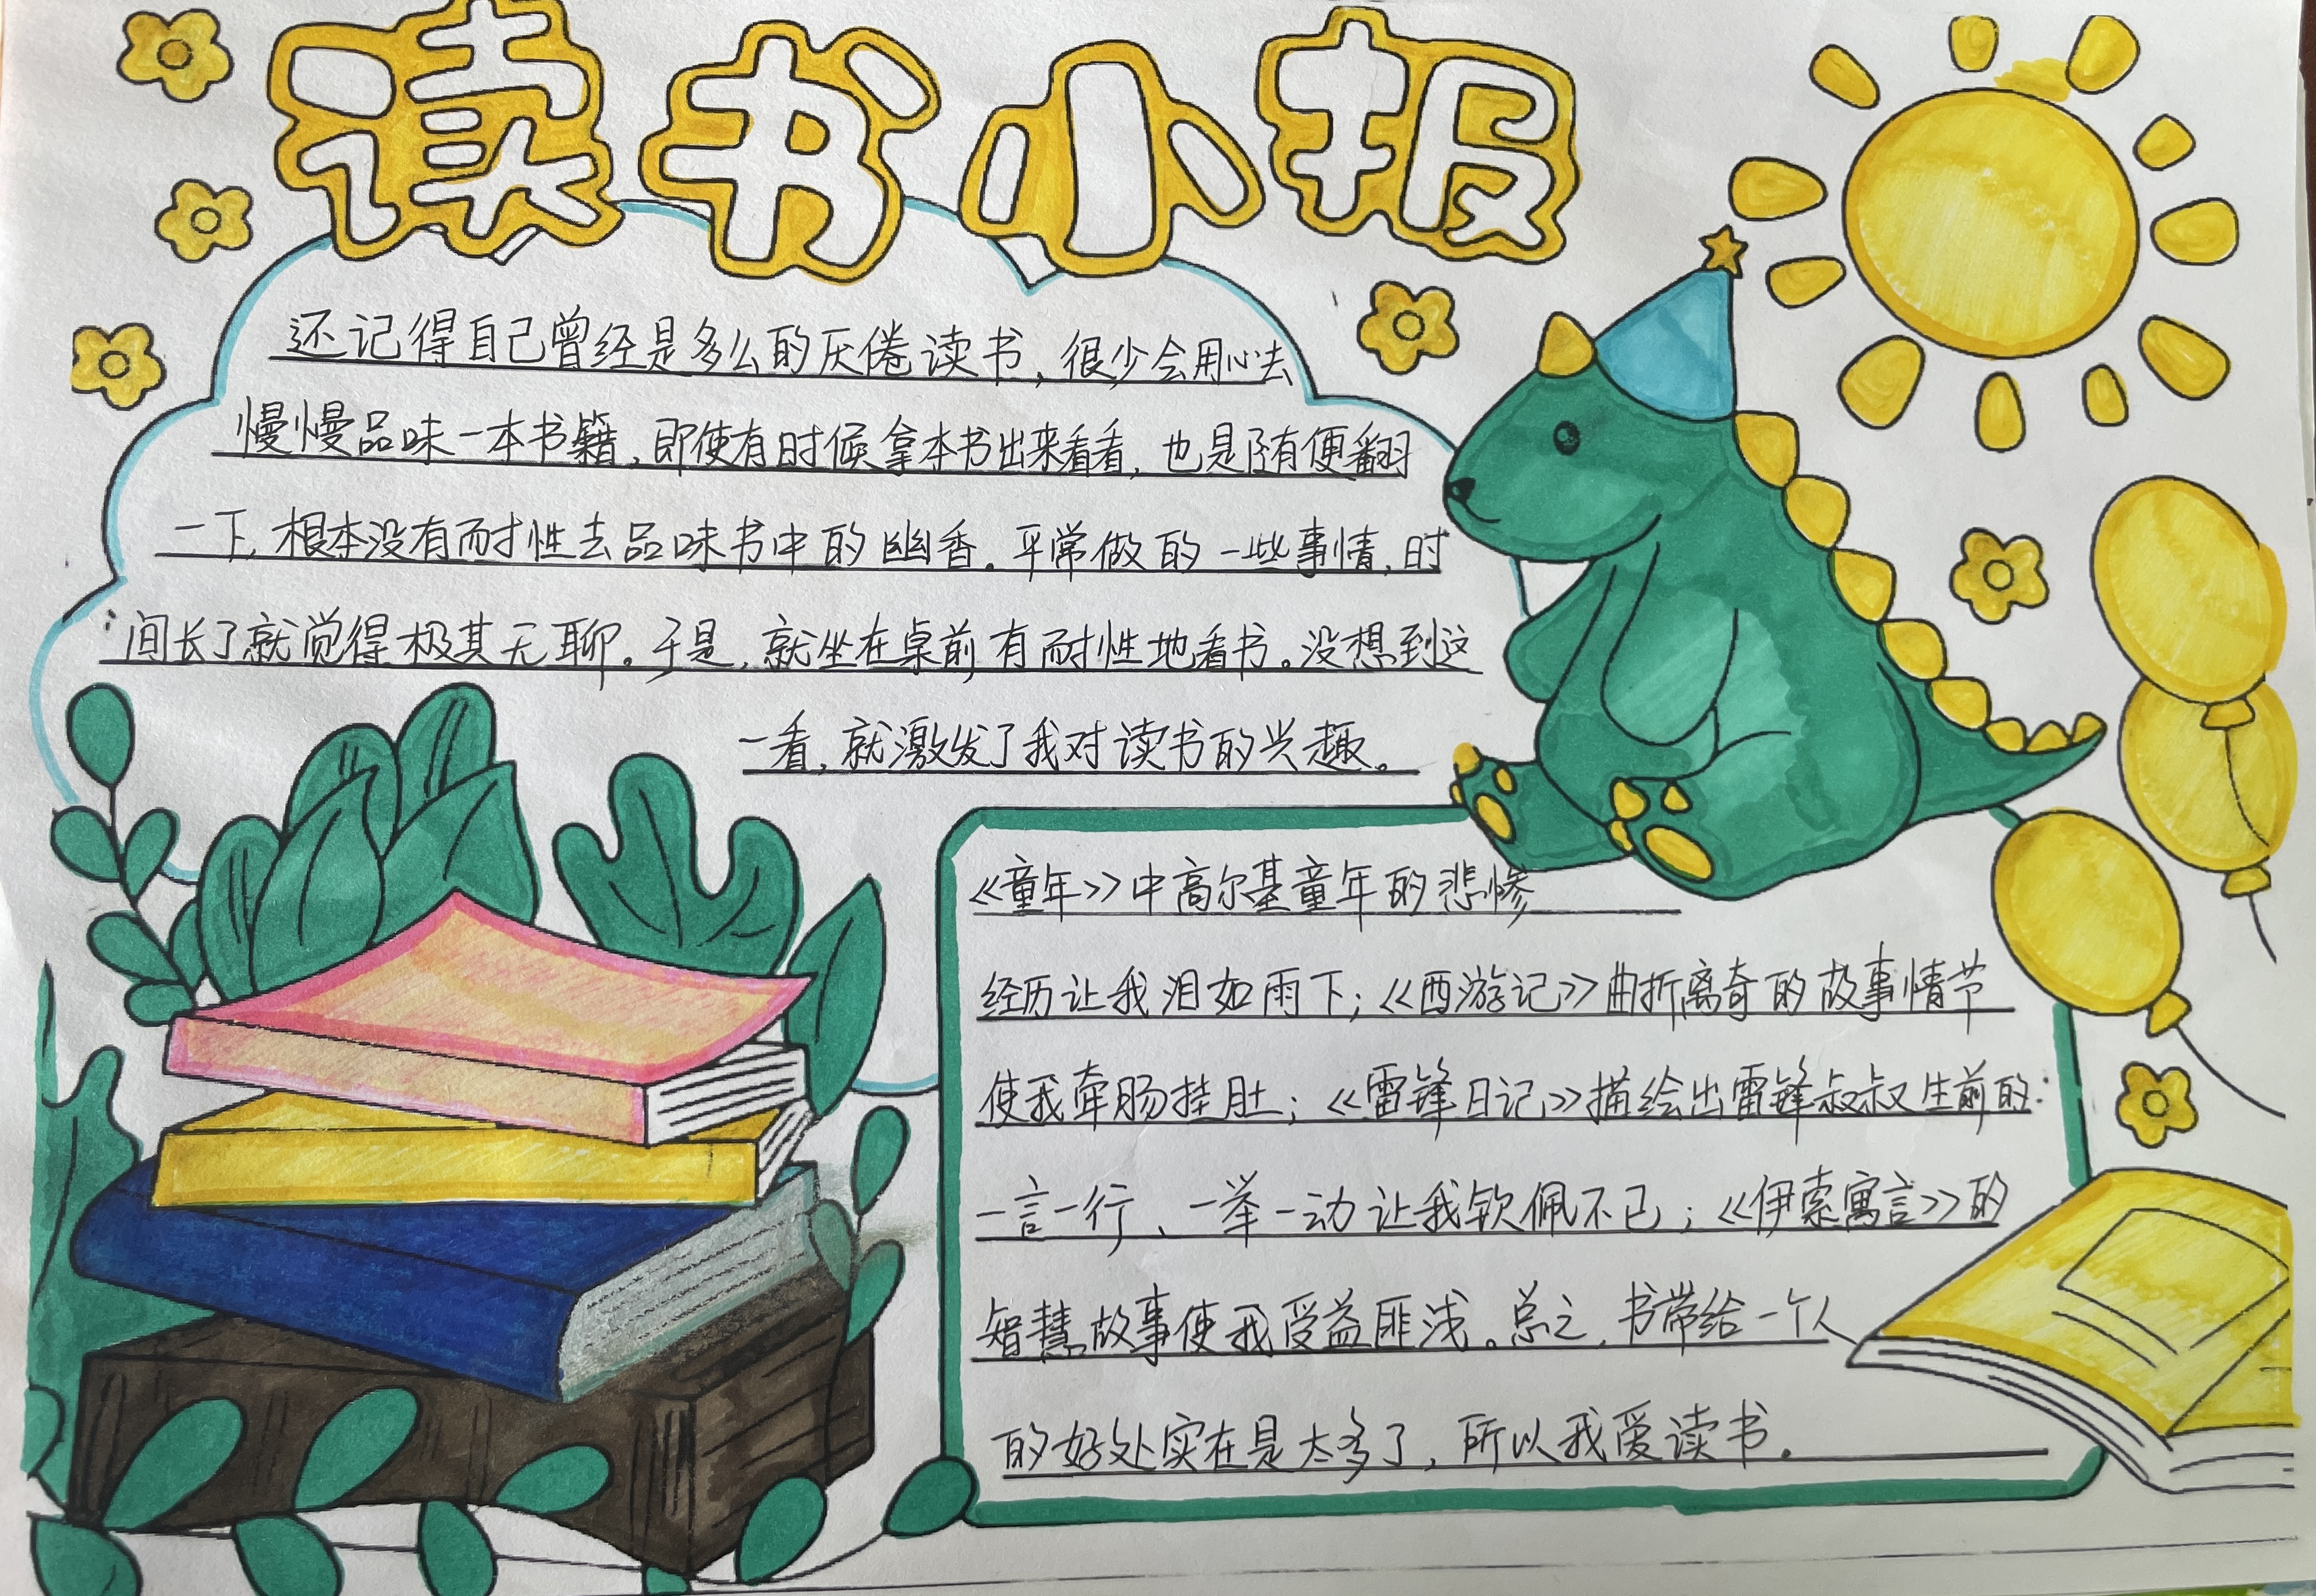 读书小报
还记得自己曾经是多么的厌倦读书，很少会用心去
慢慢品味一本书籍，即使有时候拿本书出来看看，也是随便翻
一下，根本没有耐性去品味书中的幽香。平常做的一些事情，时
间长了就觉得极其无聊。于是，就坐在桌前，有耐性地看书。没想到这
一看，就激发了我对读书的兴趣。
《童年》中高尔基童年的悲惨
经历让我泪如雨下；《西游记》曲折离奇的故事情节
使我牵肠挂肚；《雷锋日记》描绘出雷锋叔叔生前的
一言一行、一举一动让我钦佩不已；《伊索寓言》的
智慧故事使我受益匪浅。总之，书带给一个人
的好处实在是太多了，所以我爱读书。